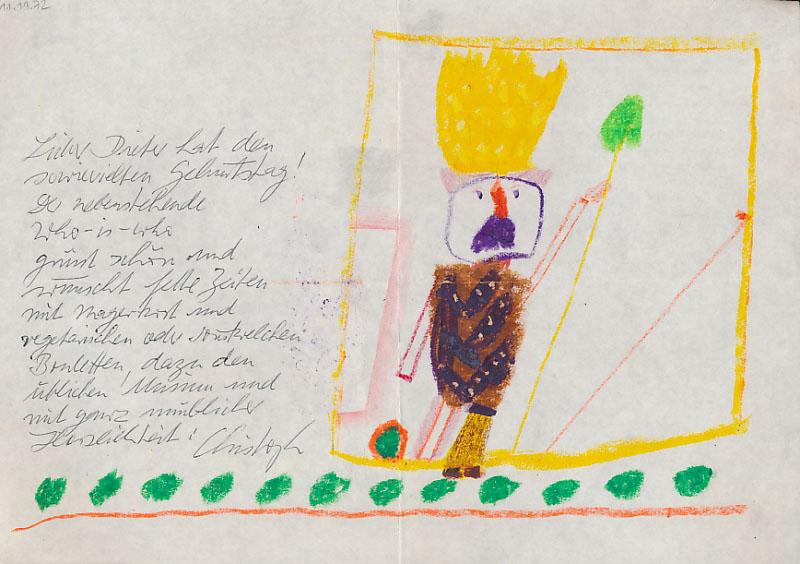 11.11.72
Lieber Dieter hat den
sowievielten Geburtstag!
Der nebenstehende
Who-is-who
grüsst schön und
wünscht fette Zeiten
mit Magerkost und
vegetarischen oder sonstwelchen
Bouletten, dazu den
üblichen und
mit ganz unüblicher
Herzlichkeit: Christoph